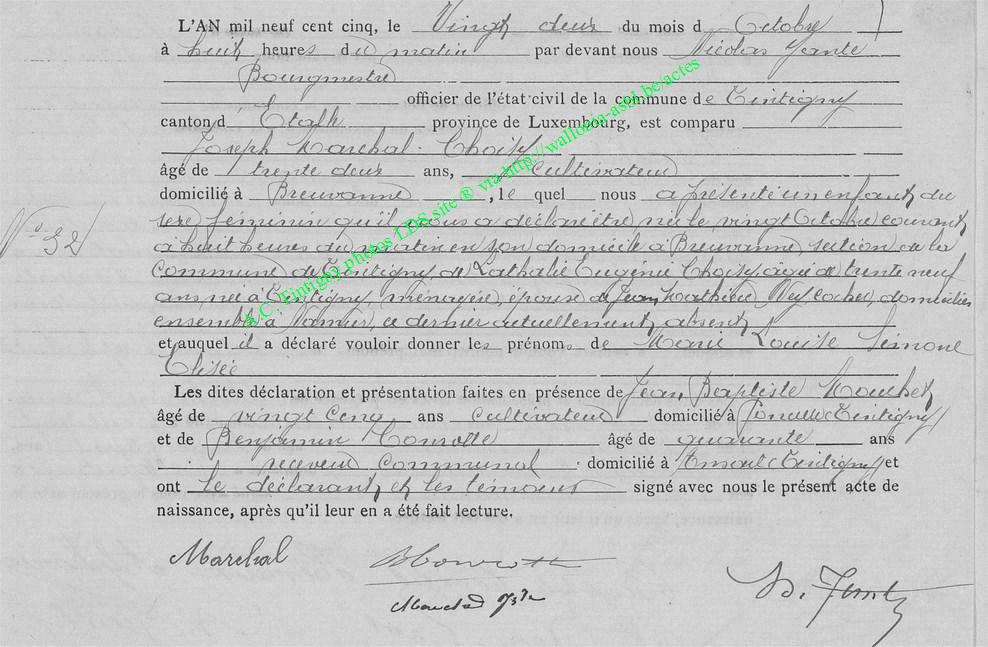 L'AN mil neuf cent cinq, le Vingt deux du mois d Octobre
à huit heures du matin par devant nous Nicolas
Bourgmestre
officier de l'état civil de la commune de Tintigny
canton d'Etalle province de Luxembourg, est comparu
Joseph Marchal-Choisy
âgé de trente deux ans, cultivateur
domicilié à Breuvanne, le quel nous a présenté un enfant du
sexe féminin qu'il nous a déclaré être née le vingt Octobre courant
à huit heures du matin en son domicile à Breuvanne, section de la
Commune de Tintigny, de Nathalie Eugénie Choisy, âgée de trente neuf
ans, née à Tintigny, ménagère, épouse de Jean Mathieu domiciliés
ensemble à Namur, ce dernier actuellement absent
et auquel il a déclaré vouloir donner les prénoms de Marie Louise Simone
Elisée
Les dites déclaration et présentation faites en présence de Jean Baptiste Mouchet
âgé de vingt cinq ans cultivateur domicilié à (Tintigny)
et de Benjamin âgé de quarante ans
receveur communal domicilié à Ansart (Tintigny) et
ont le déclarant et les témoins signé avec nous le présent acte de
naissance, après qu'il leur en a été fait lecture.
Marchal
N° 32
A.C. Tintigny photos LDS site ® via http://wallonia-asgi.be/actes